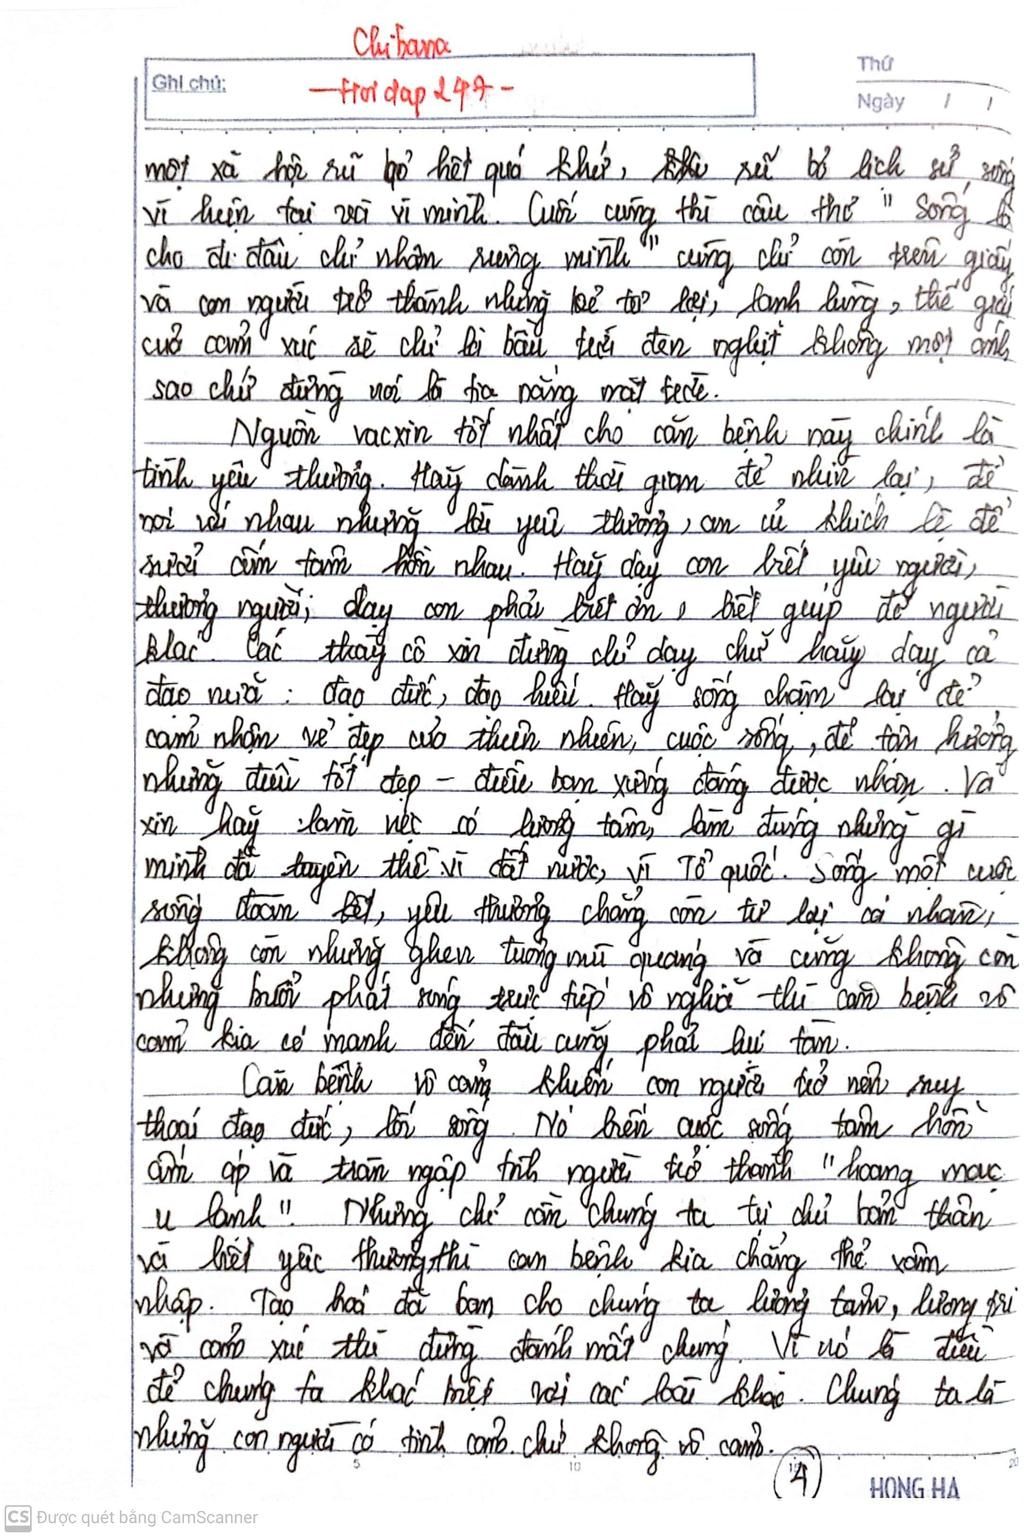 Chibana
Ghi chú: — Hoi dap 247 -
Thứ
Ngày / /
một xã hội rũ bỏ hết quá khứ, rũ bỏ lịch sử, sống
vì hiện tại và vì mình. Cuối cùng thì câu thơ " Sống là
cho đi đâu chỉ nhận riêng mình " cũng chỉ còn trên giấy
và con người trở thành những kẻ tơ lại, lạnh lùng, thế giới
của cảm xúc sẽ chỉ là bầu trời đen nghịt không một ánh
sao chứ đừng nói là tia nắng mặt trời.
Nguồn vacxin tốt nhất cho căn bệnh này chính là
tình yêu thương. Hãy dành thời gian để nhìn lại, để
nói với nhau những lời yêu thương, an ủi khích lệ để
sưởi ấm tâm hồn nhau. Hãy dạy con biết yêu người,
thương người; dạy con phải biết ơn, biết giúp đỡ người
khác. Các thầy cô xin đừng chỉ dạy chữ hãy dạy cả
đạo nữa : đạo đức, đạo hiếu. Hãy sống chậm lại để
cảm nhận vẻ đẹp của thiên nhiên, cuộc sống, để tận hưởng
những điều tốt đẹp – điều bạn xứng đáng được nhận. Và
xin hãy làm việc có lương tâm, làm đúng những gì
mình đã tuyên thề vì đất nước, vì Tổ quốc. Sống một cuộc
sống đoàn kết, yêu thương chẳng còn tư lợi cá nhân,
không còn những ghen tuông mù quáng và cũng không còn
những buổi phát sóng trực tiếp vô nghĩa thì căn bệnh vô
cảm kia có mạnh đến đâu cũng phải lụi tàn.
Căn bệnh vô cảm khiến con người trở nên suy
thoái đạo đức, lối sống. Nó biến cuộc sống tâm hồn
ấm áp và tràn ngập tình người trở thành "hoang mạc
u lạnh". Nhưng chỉ cần chúng ta tự chủ bản thân
và biết yêu thương, thì căn bệnh kia chẳng thể xâm
nhập. Tạo hoá đã ban cho chúng ta lương tâm, lương tri
và cảm xúc thì đừng đánh mất chúng. Vì nó là điều
để chúng ta khác biệt với các loài khác. Chúng ta là
những con người có tình cảm chứ không vô cảm.
4
HONG HA
5 10 15 20
CS Được quét bằng CamScanner